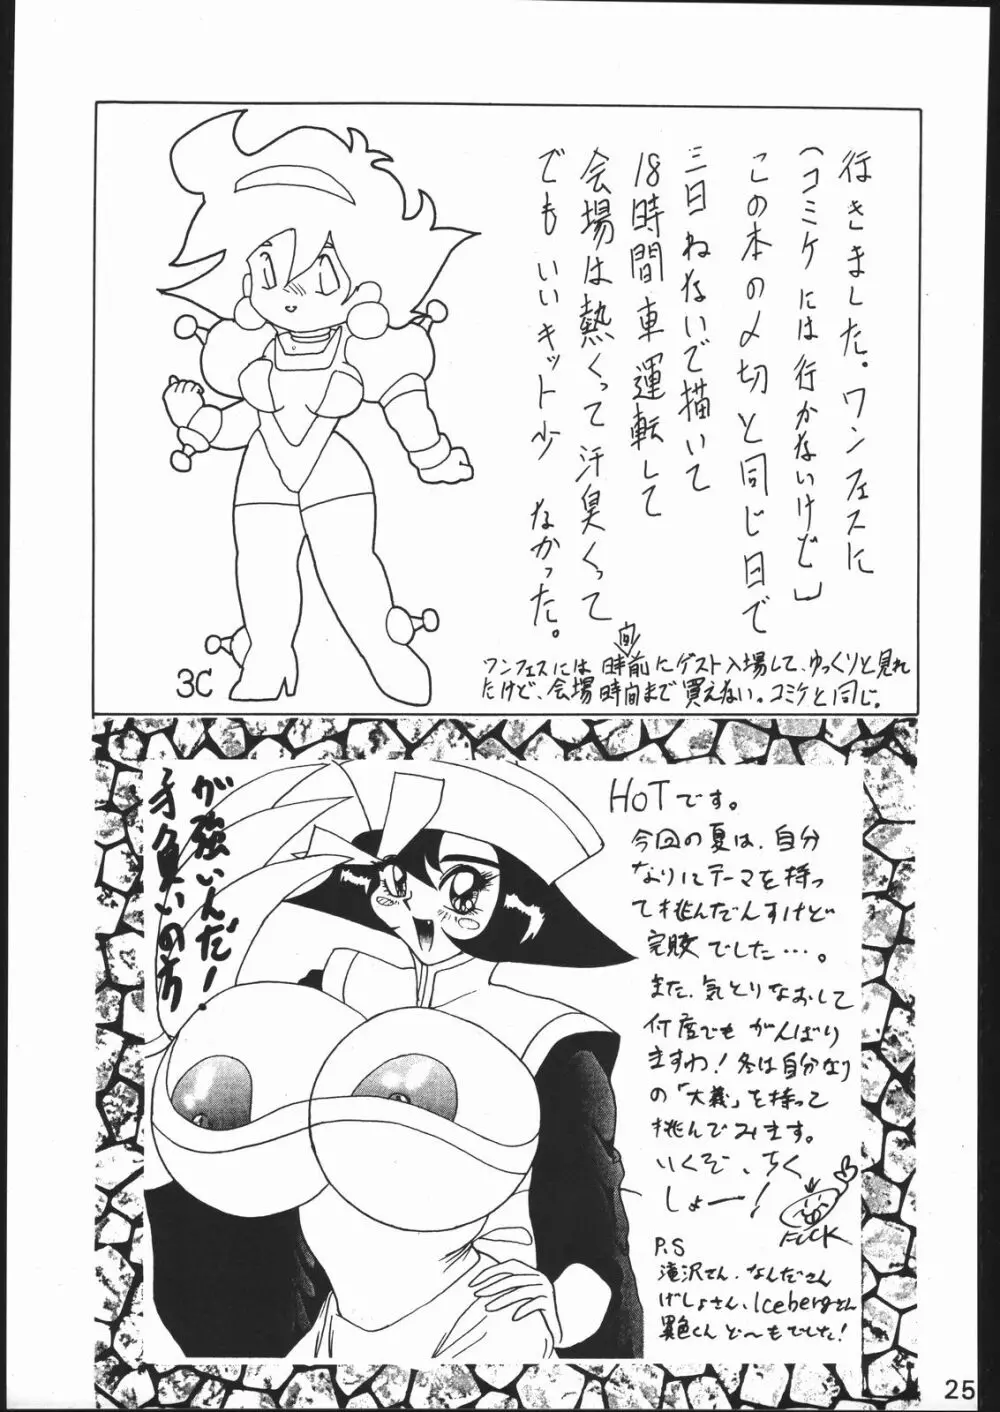 行きました。ワンフェスに
(コミケには行かないけど)
この本の〆切と同じ日で
三日ねないで描いて
18時間車運転して
会場は熱くって汗臭くって
でもいいキット少なかった。
ワンフェスには 時前にゲスト入場して、ゆっくりと見れ
たけど、会場時間まで買えない。コミケと同じ。
3C
が強いんだ!
才負いの方
HOTです。
今回の夏は、自分
なりにテーマを持っ
て挑んだんすけど
完敗でした…。
また、気とりなおして
何度でもがんばり
ますわ!冬は自分なり
の「大義」を持って
挑んでみます。
いくぞ、ちく
しょー!
FUCK
P.S
滝沢さん、なんださん
げしょさん、Icebergさん
異色くんど〜もでした!
25